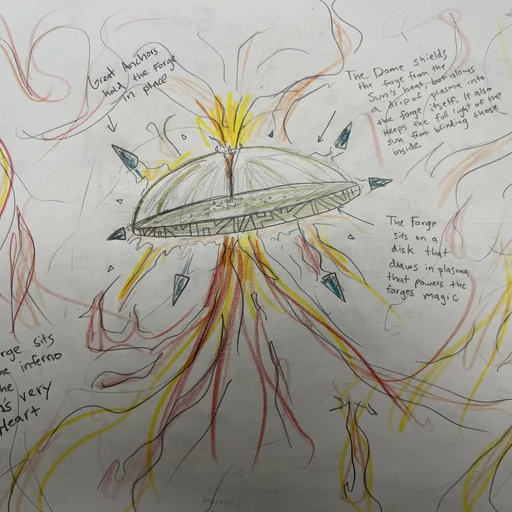 Great Anchors
hold the Forge
in place
The Dome shields
the forge from the
Sun's heat, but allows
a drip of plasma into
the forge itself. It also
keeps the full light of the
sun from blinding those
inside
The Forge
sits on a
disk that
draws in plasma
that powers the
forges magic
rge sits
inferno
very
Heart